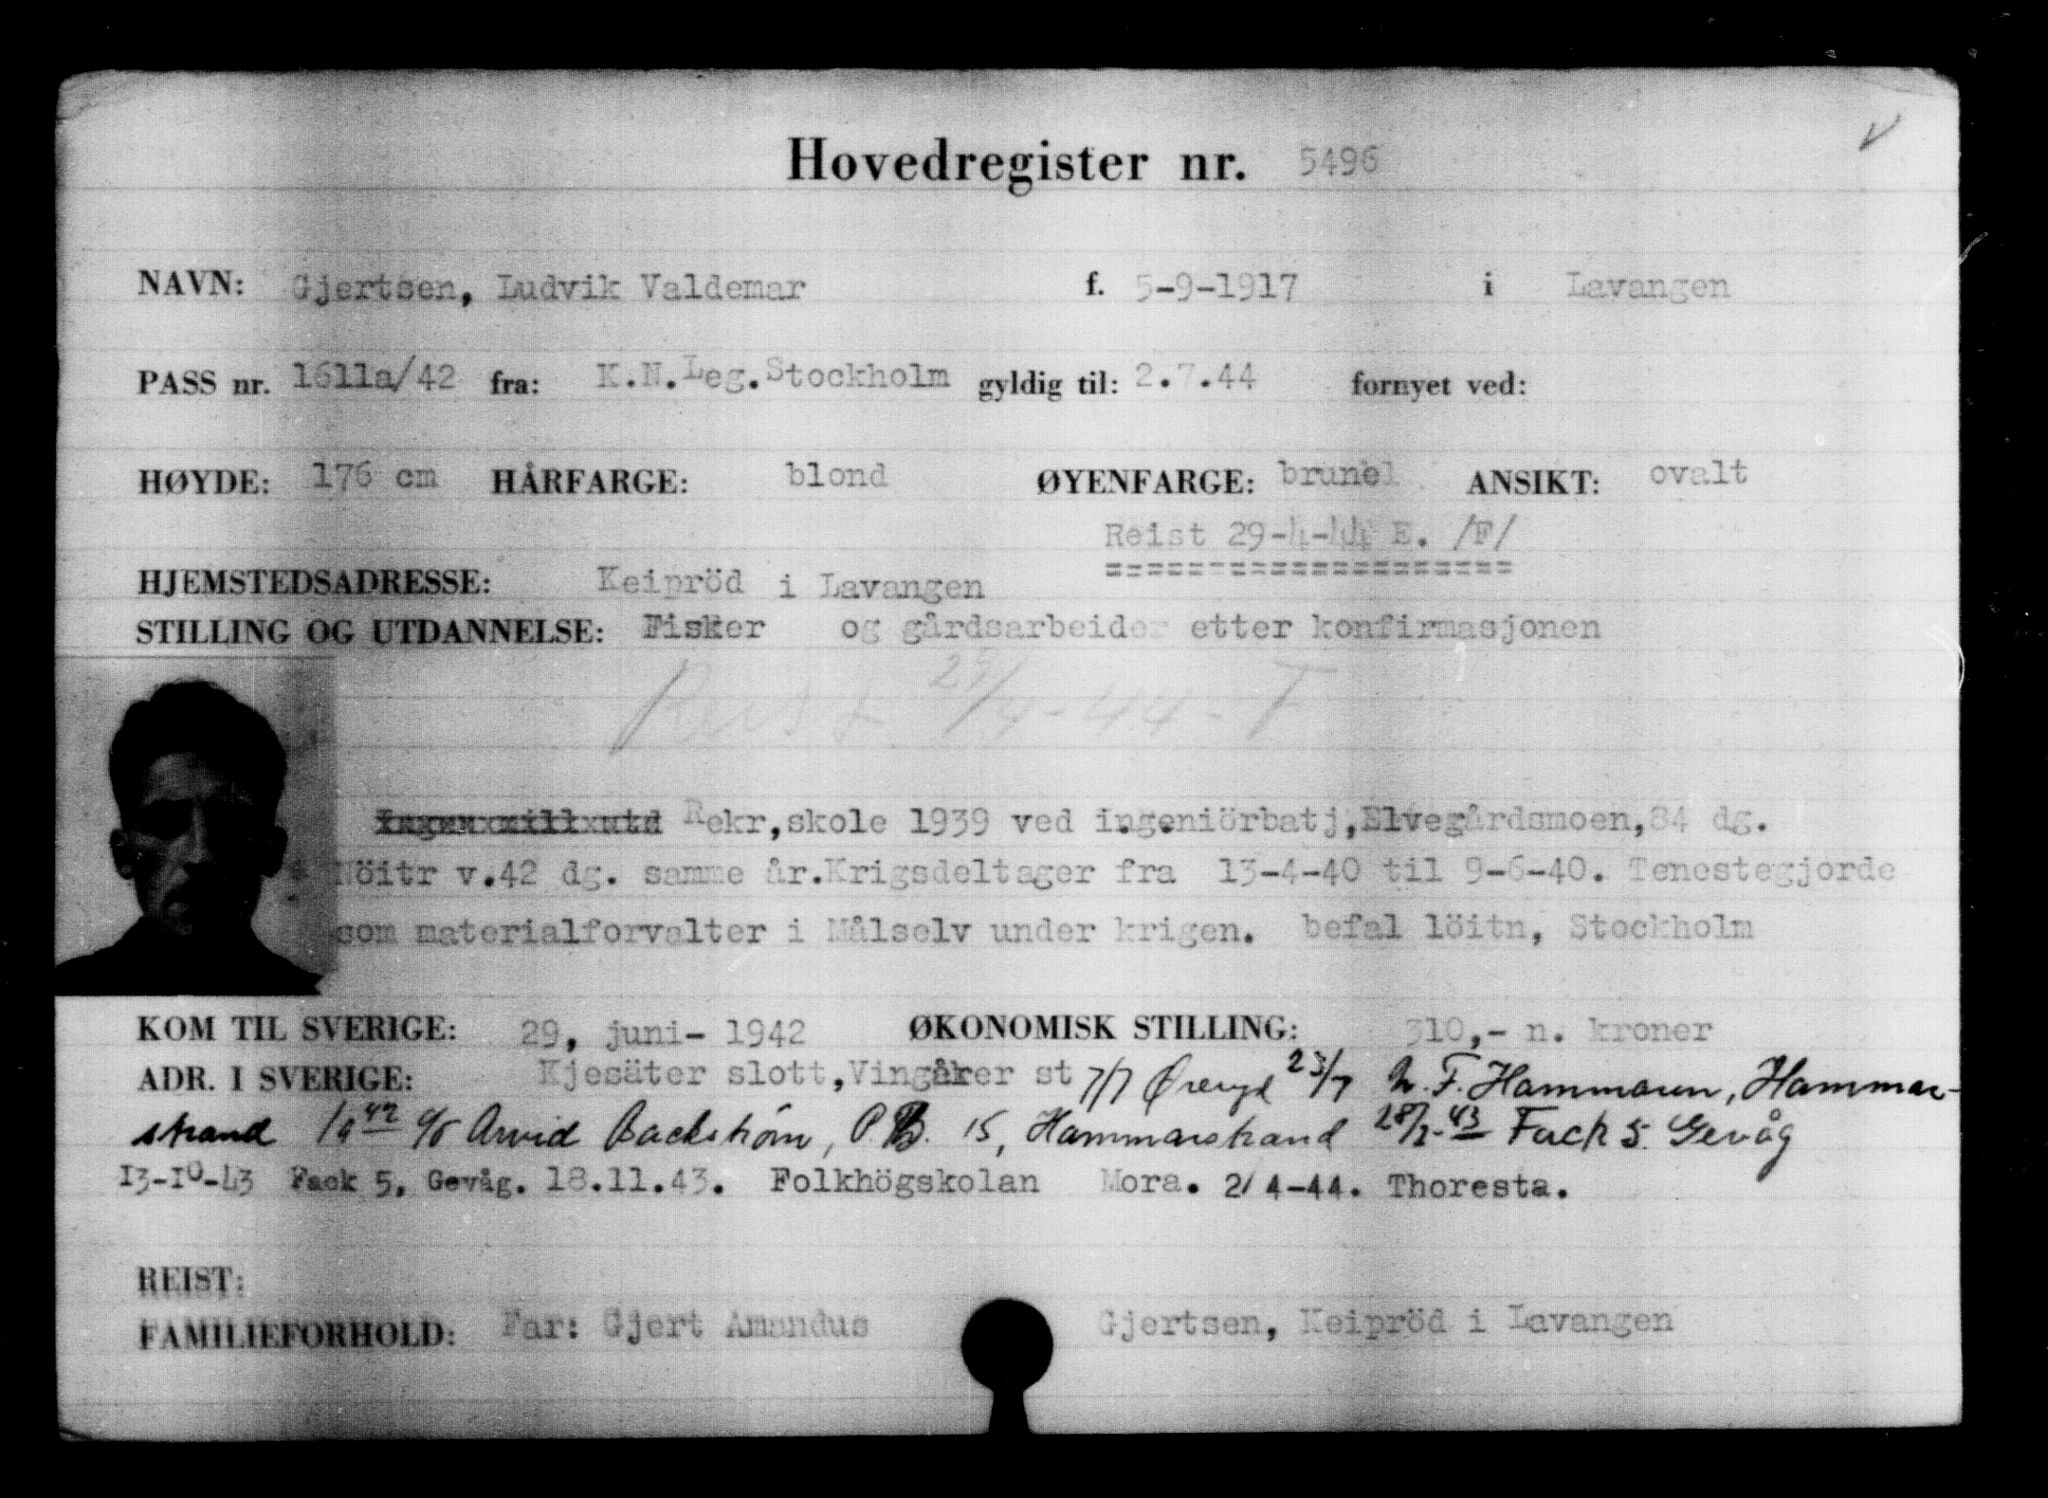 Hovedregister nr. 5496
NAVN: Gjertsen, Ludvik Valdemar f. 5-9-1917 i Lavangen
PASS nr. 1611a/42 fra: K.N.Leg.Stockholm gyldig til: 2.7.44 fornyet ved:
HØYDE: 176 cm HÅRFARGE: blond ØYENFARGE: brune ANSIKT: ovalt
Reist 29-4-44 E. /F/
====================
HJEMSTEDSADRESSE: Keipröd i Lavangen
STILLING OG UTDANNELSE: Fisker og gårdsarbeider etter konfirmasjonen
Reist /4-44-F
Rekr,skole 1939 ved ingeniörbatj,Elvegårdsmoen,84 dg.
Nöitr v.42 dg. samme år.Krigsdeltager fra 13-4-40 til 9-6-40. Tenestegjorde
som materialforvalter i Målselv under krigen. befal löitn, Stockholm
KOM TIL SVERIGE: 29, juni- 1942 ØKONOMISK STILLING: 310,- n. kroner
ADR. I SVERIGE: Kjesäter slott,Vingåker st 7/7 23/7 F. Hammaren, Hammar-
strand 1/9 42 c/o Arvid Backstrøm, P.B. 15, Hammarstrand 28/2-43 Fack 5. Gevåg
13-10-43 Fack 5, Gevåg. 18.11.43. Folkhögskolan Mora. 2/4-44. Thoresta.
REIST:
FAMILIEFORHOLD: Far: Gjert Amandus Gjertsen, Keipröd i Lavangen